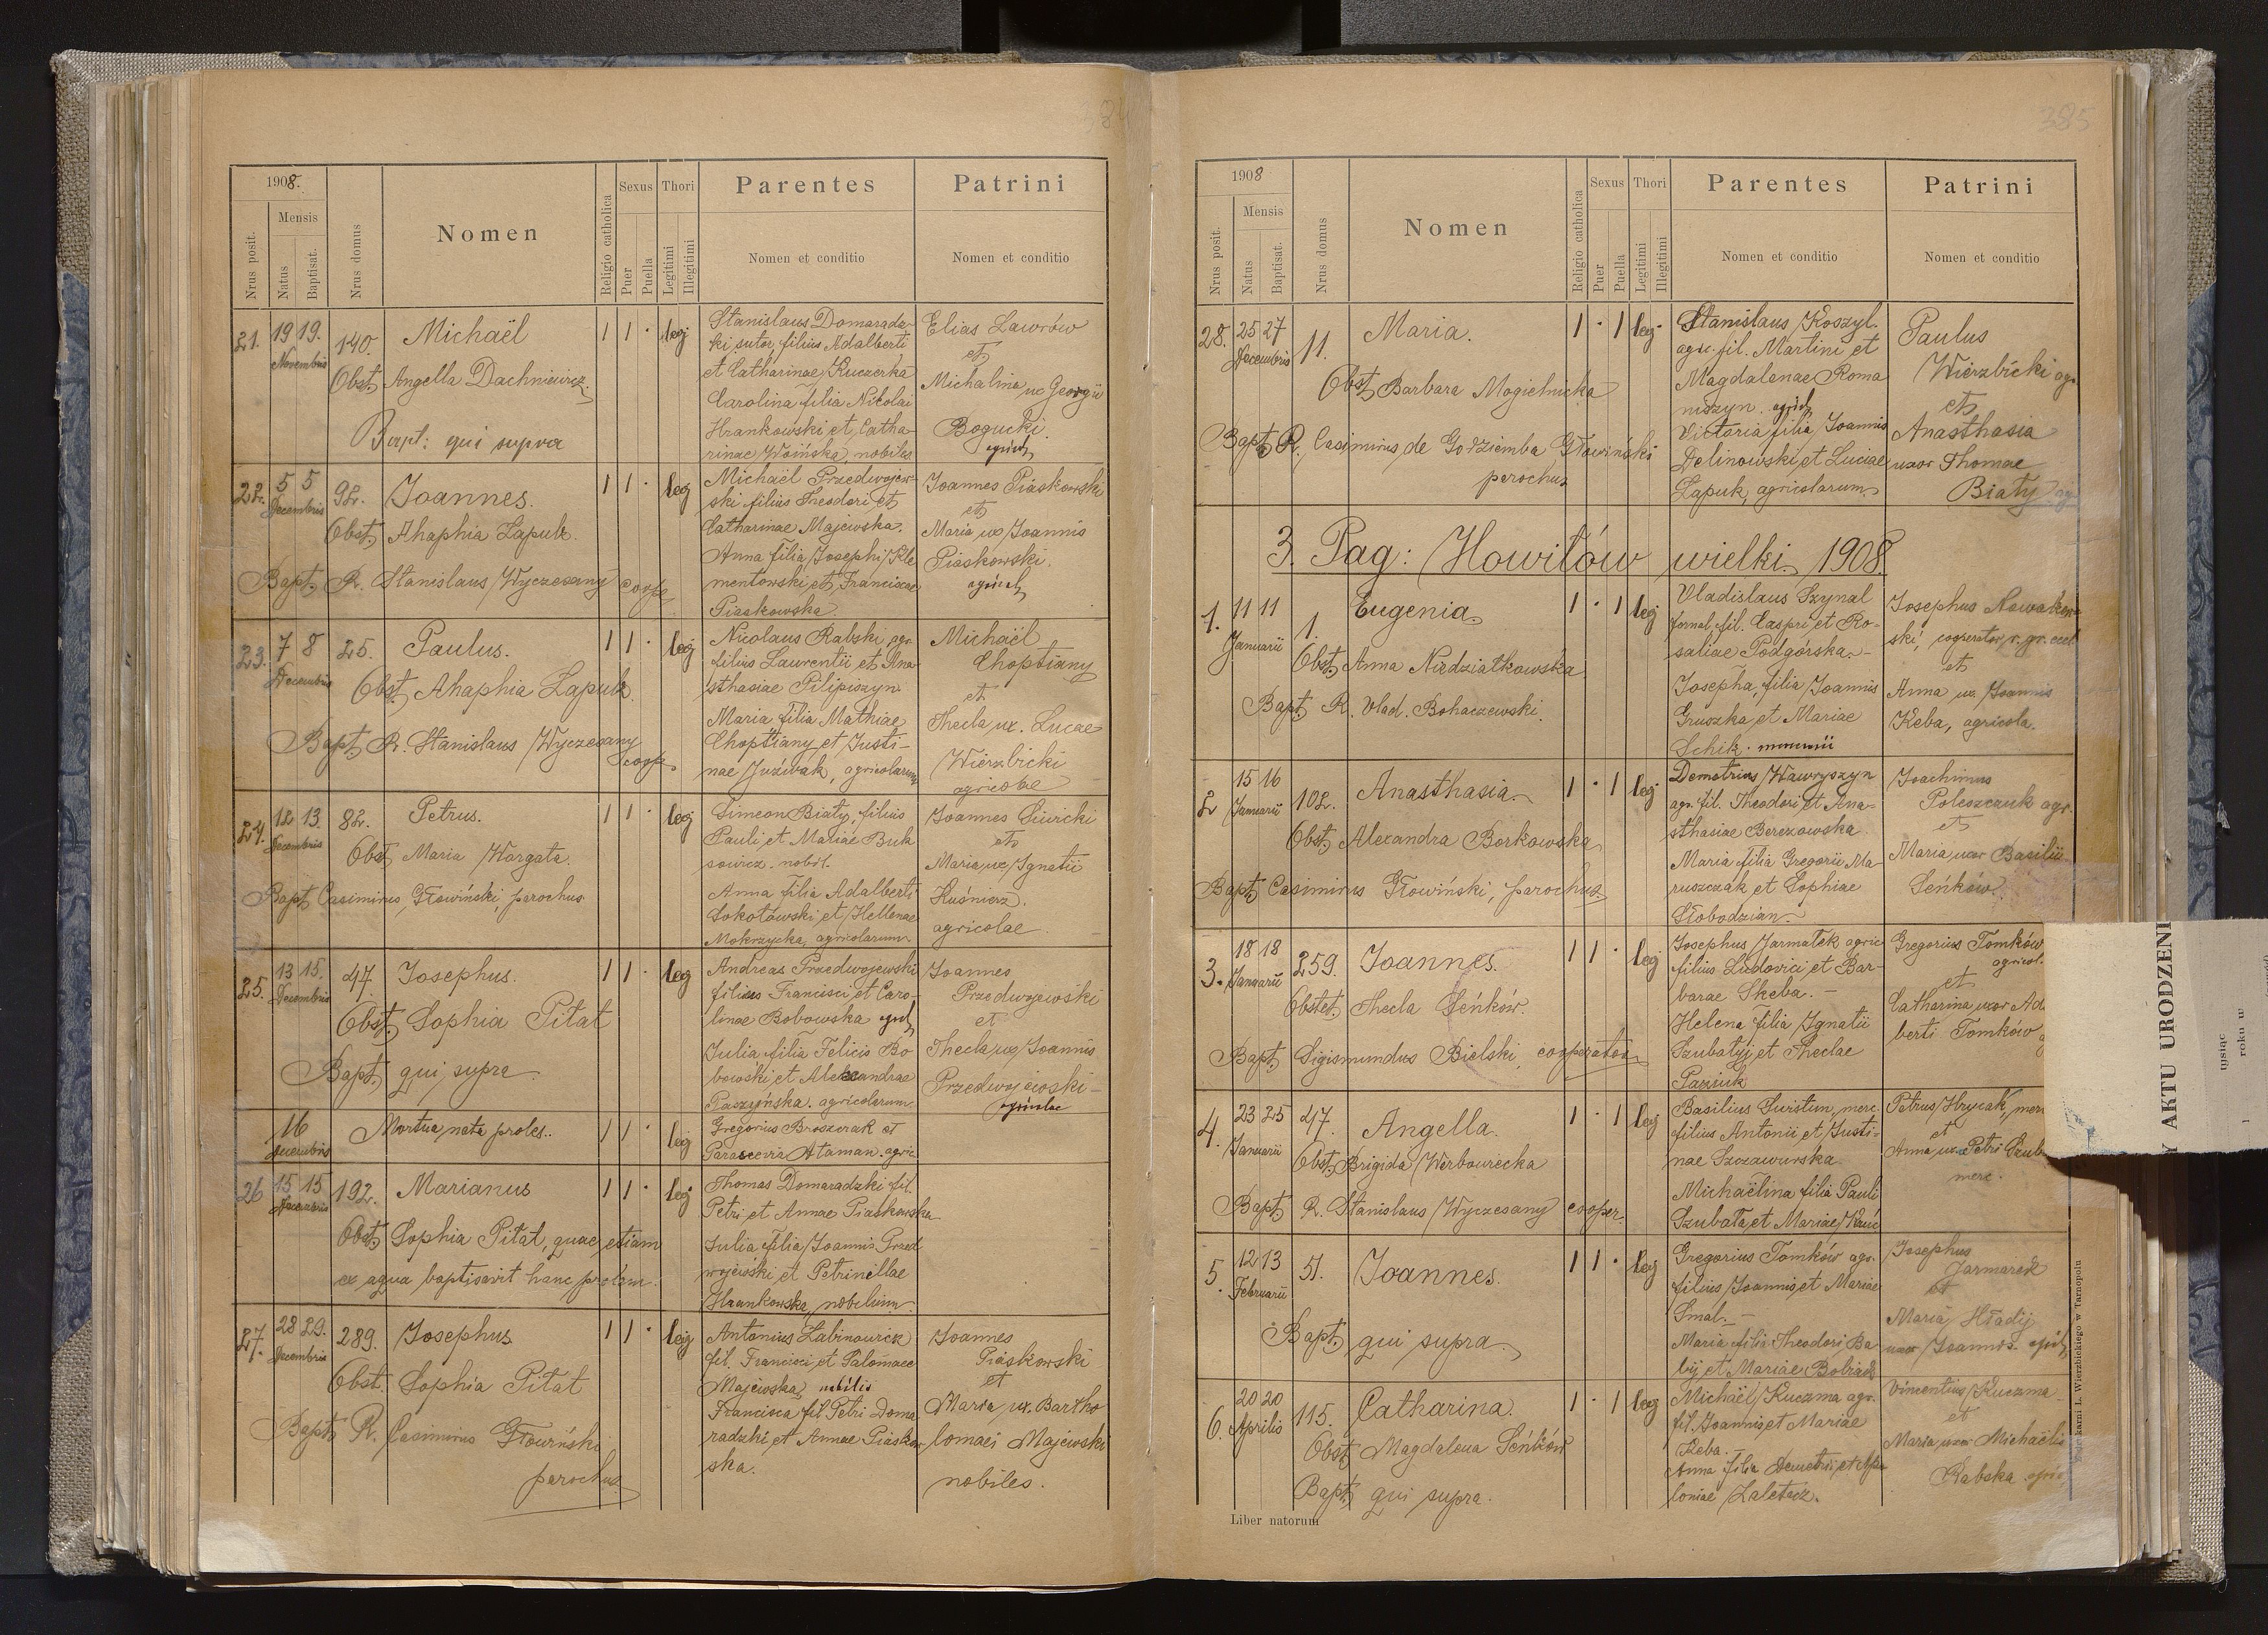 384
1908.
Nrus posit.
Mensis
Natus
Baptisat.
Nrus domus
Nomen
Religio catholica
Sexus
Puer
Puella
Thori
Legitimi
Illegitimi
Parentes
Nomen et conditio
Patrini
Nomen et conditio
21. 19 19. Novembris 140. Michaël 1 1 · leg
Obst. Angella Dachniewicz.
Bapt: qui supra
Stanislaus Domaradz-
ki sutor filius Adalberti
et Catharinae Kuczerka
Carolina filia Nicolai
Hrankowski et Catha-
rinae Woińska, nobiles
Elias Lawrów
et
Michalina ux Georgii
Bogucki.
agricol.
22. 5 5 Decembris 92. Joannes. 1 1 · leg
Obst. Ahaphia Lapuk.
Bapt. R. Stanislaus Wyczesany coope.
Michaël Przedwojew-
ski filius Theodori et
Catharinae Majewska.
Anna filia Josephi Kle
mentowski et Franciscae
Piaskowska.
Joannes Piaskowski
et
Maria ux Joannis
Piaskowski.
agricol.
23. 7 8 Decembris 25. Paulus. 1 1 · leg
Obst. Ahaphia Lapuk.
Bapt. R. Stanislaus Wyczesany
coop.
Nicolaus Rabski agr.
filius Laurentii et Ana
sthasiae Pilipiszyn
Maria filia Mathiae
Choptiany et Justi-
nae Juźwak, agricolarum
Michaël
Choptiany
et
Thecla ux. Lucae
Wierzbicki
agricolae
24. 12 13 Decembris 82. Petrus. 1 1 · leg
Obst. Maria Wargata.
Bapt Casimirus Głowiński, parochus
Simeon Biały, filius
Pauli et Mariae Buk
sowicz. nobil.
Anna filia Adalberti
Sokołowski et Hellenae
Mokrzycka, agricolarum
Joannes Siwicki
et
Maria ux Ignatii
Kuśnierz.
agricolae
25. 13 15. Decembris 47. Josephus. 1 1 · leg
Obst. Sophia Pitat
Bapt. qui supra
Andreas Przedwojewski
filius Francisci et Caro-
linae Bobowska agricol.
Julia filia Felicis Bo
bowski et Alexandrae
Paszyńska. agricolarum
Joannes
Przedwojewski
et
Thecla ux Joannis
Przedwojewski -
agricolae
16 Decembris Mortua nata proles. 1 1 · leg
Gregorius Broszczak et
Parascevia Ataman. agric
26 15 15 Decembris 192. Marianus 1 1 · leg
Obst. Sophia Pitat, quae etiam
ex aqua baptisavit hanc prolem.
Thomas Domaradzki fil.
Petri et Annae Piaskowska
Julia filia Joannis Przed
wojewski et Petrinellae
Hrankowska, nobilium.
27. 28 29. Decembris 289. Josephus 1 1 · leg
Obst. Sophia Pitat
Bapt. R. Casimirus Głowiński
parochus
Antonius Labinowicz
fil. Francisci et Salomaee
Majewska, nobilis
Francisca fil Petri Doma
radzki et Annae Piaskow
ska.
Joannes
Piaskowski
et
Maria ux. Bartho
lomaei Majewski
nobiles.
385
1908
Nrus posit.
Mensis
Natus
Baptisat.
Nrus domus
Nomen
Religio catholica
Sexus
Puer
Puella
Thori
Legitimi
Illegitimi
Parentes
Nomen et conditio
Patrini
Nomen et conditio
28. 25 27 Decembris 11. Maria. 1 · 1 leg
Obst. Barbara Mogielnicka
Bapt. R. Casimirus de Godziemba Głowiński
parochus
Stanislaus Koszyl.
agr. fil. Martini et
Magdalenae Roma
niszyn. agricol.
Victoria filia Joannis
Delinowski et Luciae
Lapuk, agricolarum
Paulus
Wierzbicki agr.
et
Anasthasia
uxor Thomae
Biały ag
3. Pag: Howiłów wielki 1908.
1. 11 11 Januarii 1. Eugenia. 1 · 1 leg
Obst. Anna Niedziałkowska
Bapt. R. Vlad. Bohaczewski.
Vladislaus Szynal
fornal. fil. Caspri et Ro-
saliae Podgórska. -
Josepha, filia Joannis
Gruszka et Mariae
Schik.
Josephus Nowakow
ski, cooperator r. gr. eccl
et
Anna ux. Joannis
Keba, agricola.
2 15 16 Januarii 102. Anasthasia. 1 · 1 leg
Obst. Alexandra Borkowska
Bapt. Casimirus Głowiński, parochus.
Demetrius Wawryszyn
agr. fil. Theodori et Ana-
sthasiae Berezowska
Maria filia Gregorii Ma-
ruszczak et Sophiae
Słobodzian.
Joachimus
Poleszczuk agr.
et
Maria uxor Basilii
Seńków
3. 18 18 Januarii 259. Joannes. 1 1 · leg
Obstet. Thecla Seńków.
Bapt. Sigismundus Bielski, cooperator
Josephus Jarmatek agric
filius Ludovici et Bar-
barae Skeba. -
Helena filia Ignatii
Szubatyj et Theclae
Paziuk
Gregorius Tomków
agricol.
et
Catharina uxor Ad
berti Tomków
4. 23 25 Januarii 47. Angella. 1 · 1 leg
Obst. Brigida Werbowiecka
Bapt. R. Stanislaus Wyczesany cooper.
Basilius Surstun, merc.
filius Antonii et Justi-
nae Szczawurska.
Michaëlina filia Pauli
Szubata et Mariae
Petrus Hrycak, mer
et
Anna ux. Petri Szub
merc.
5. 12 13 Februarii 51. Joannes. 1 1 · leg
Bapt. qui supra.
Gregorius Tomków agr.
filius Joannis et Mariae
Smal. -
Maria filia Theodori Ba
bij et Mariae
Josephus
Jarmarek
et
Maria Hładij
uxor Joannis. agricol.
6. 20 20 Aprilis 115. Catharina. 1 · 1 leg
Obst. Magdalena Seńków
Bapt. qui supra.
Michaël Kuczma agr.
fil. Joannis et Mariae
Keba.
Anna filia Demetrii et Apo
loniae Zaletacz.
Vincentius Kuczma
et
Maria uxor Michaëlis
Rabska
Liber natorum
karni L. Wierzbickiego w Tarnopolu
Y AKTU URODZENI
tysiąc
roku w